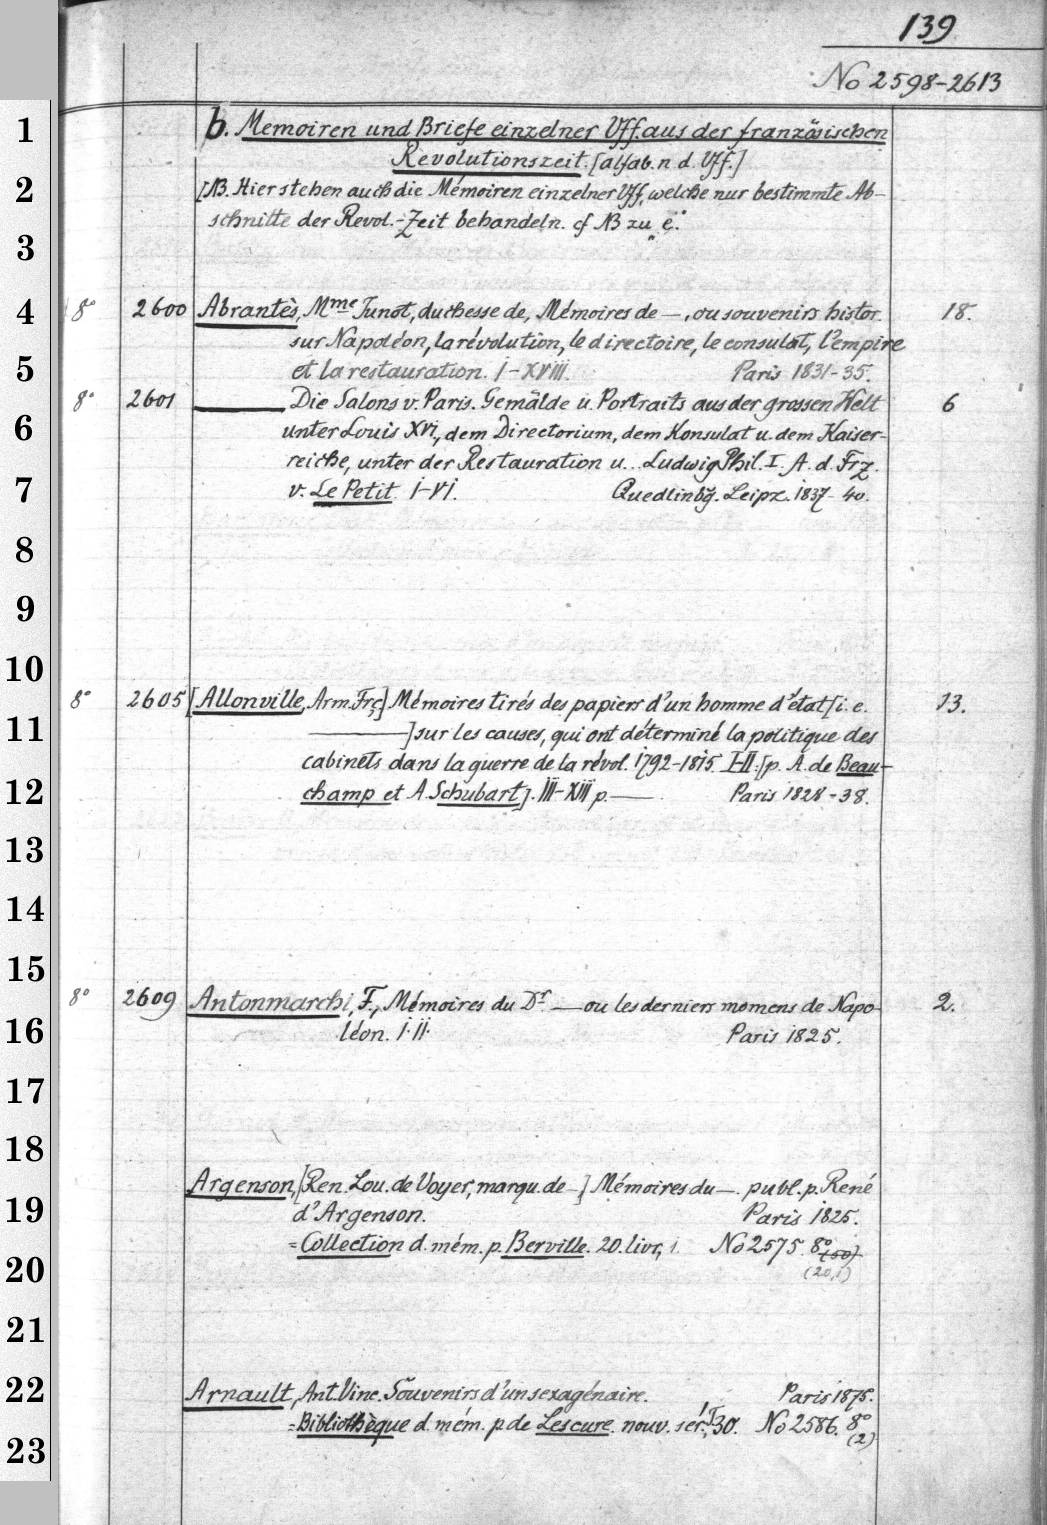 139
No 2598-2613
b. Memoiren und Briefe einzelner Vff. aus der französischen
Revolutionszeit. [alfab. n. d. Vff.]
[NB. Hier stehen auch die Mémoiren einzelner Vff, welche nur bestimmte Ab-
schnitte der Revol.-Zeit behandeln. cf NB zu „c."
8° 2600 Abrantès, Mme Junot, duchesse de, Mémoires de —, ou souvenirs histor. 18.
sur Napoléon, la révolution, le directoire, le consulat, l'empire
et la restauration. I-XVIII. Paris 1831-35.
8° 2601 ——— Die Salons v. Paris. Gemälde u. Portraits aus der grossen Welt 6
unter Louis XVI., dem Directorium, dem Konsulat u. dem Kaiser-
reiche, unter der Restauration u. . Ludwig Phil. I. A. d. Frz.
v. Le Petit I-VI. Quedlinbg. Leipz. 1837-40.
8° 2605 [Allonville, Arm. Frç] Mémoires tirés des papiers d'un homme d'état [i. e. 13.
———] sur les causes, qui ont déterminé la politique des
cabinets dans la guerre de la révol. 1792-1815. I-II. [p. A. de Beau-
champ et A. Schubart]. III-XIII p. —— . Paris 1828-38.
8° 2609 Antonmarchi, F., Mémoires du Dr — ou les derniers momens de Napo- 2.
léon. I. II. Paris 1825.
Argenson, [Ren. Lou. de Voyer, marqu. de —] Mémoires du —. publ. p. René
d'Argenson. Paris 1825.
= Collection d. mém. p. Berville. 20. livr, 1. No 2575 8°
(20,1)
Arnault, Ant. Vinc. Souvenirs d'un sexagénaire. Paris 1875.
= Bibliothèque d. mém. p. de Lescure. nouv. sér., T 30. No 2586. 8°
(2)
1
2
3
4
5
6
7
8
9
10
11
12
13
14
15
16
17
18
19
20
21
22
23